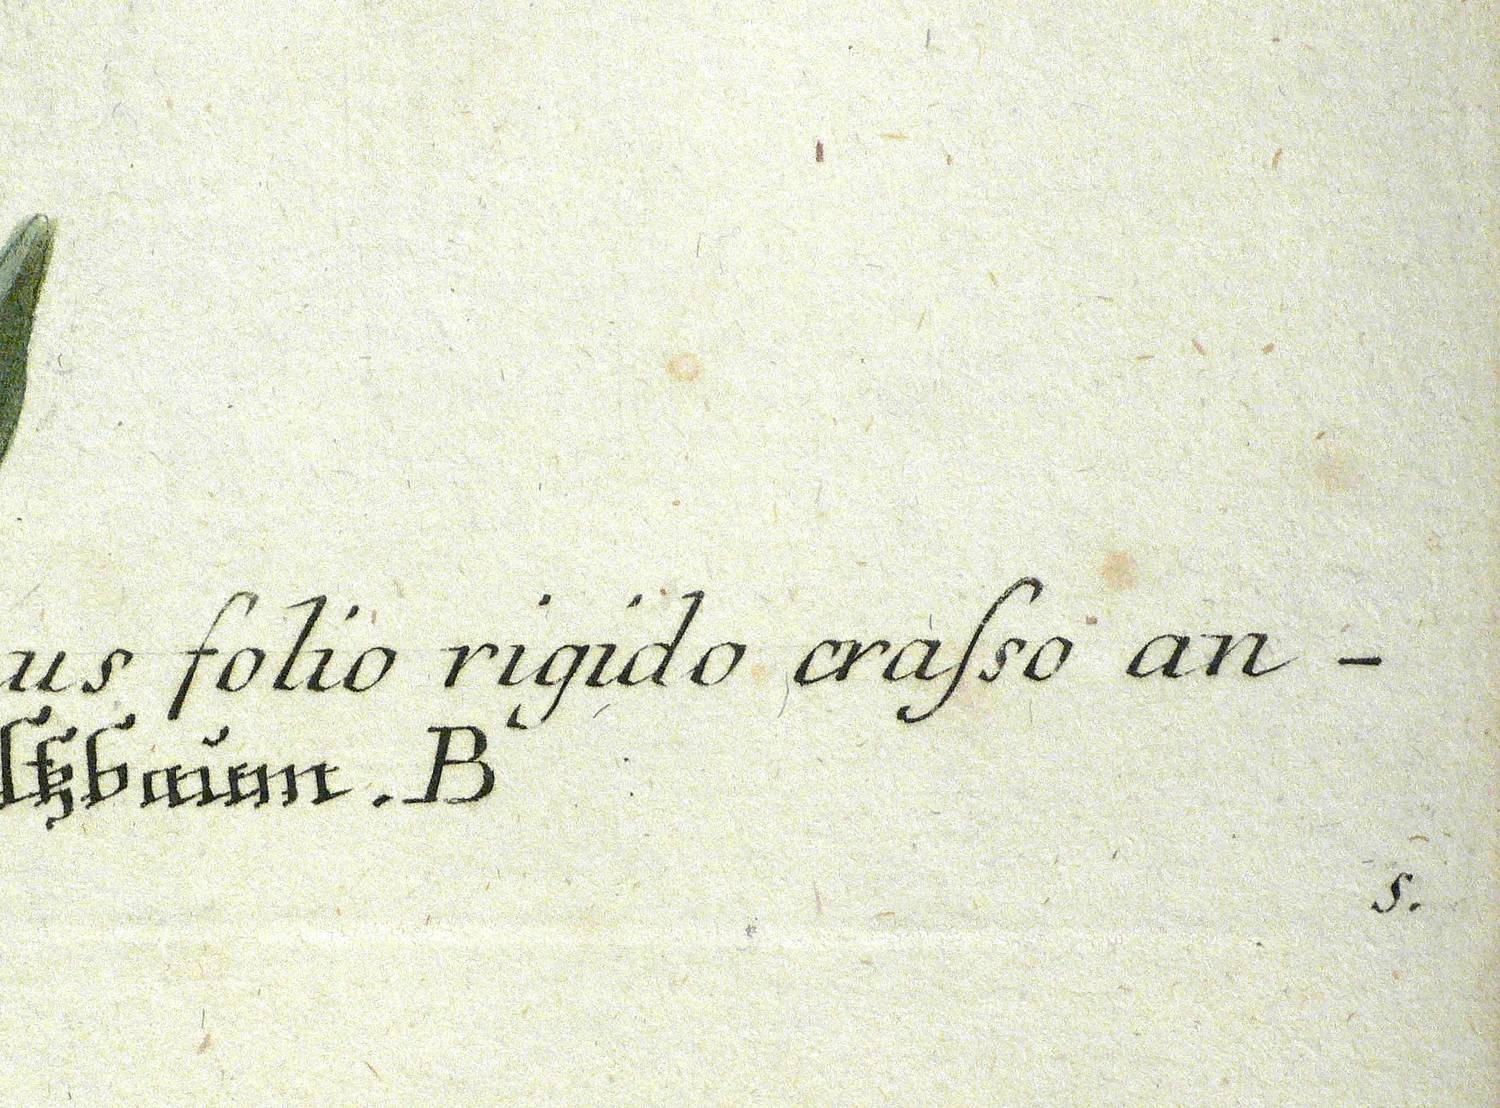 us folio rigido craſso an-
ltzbaŭm. B
s.